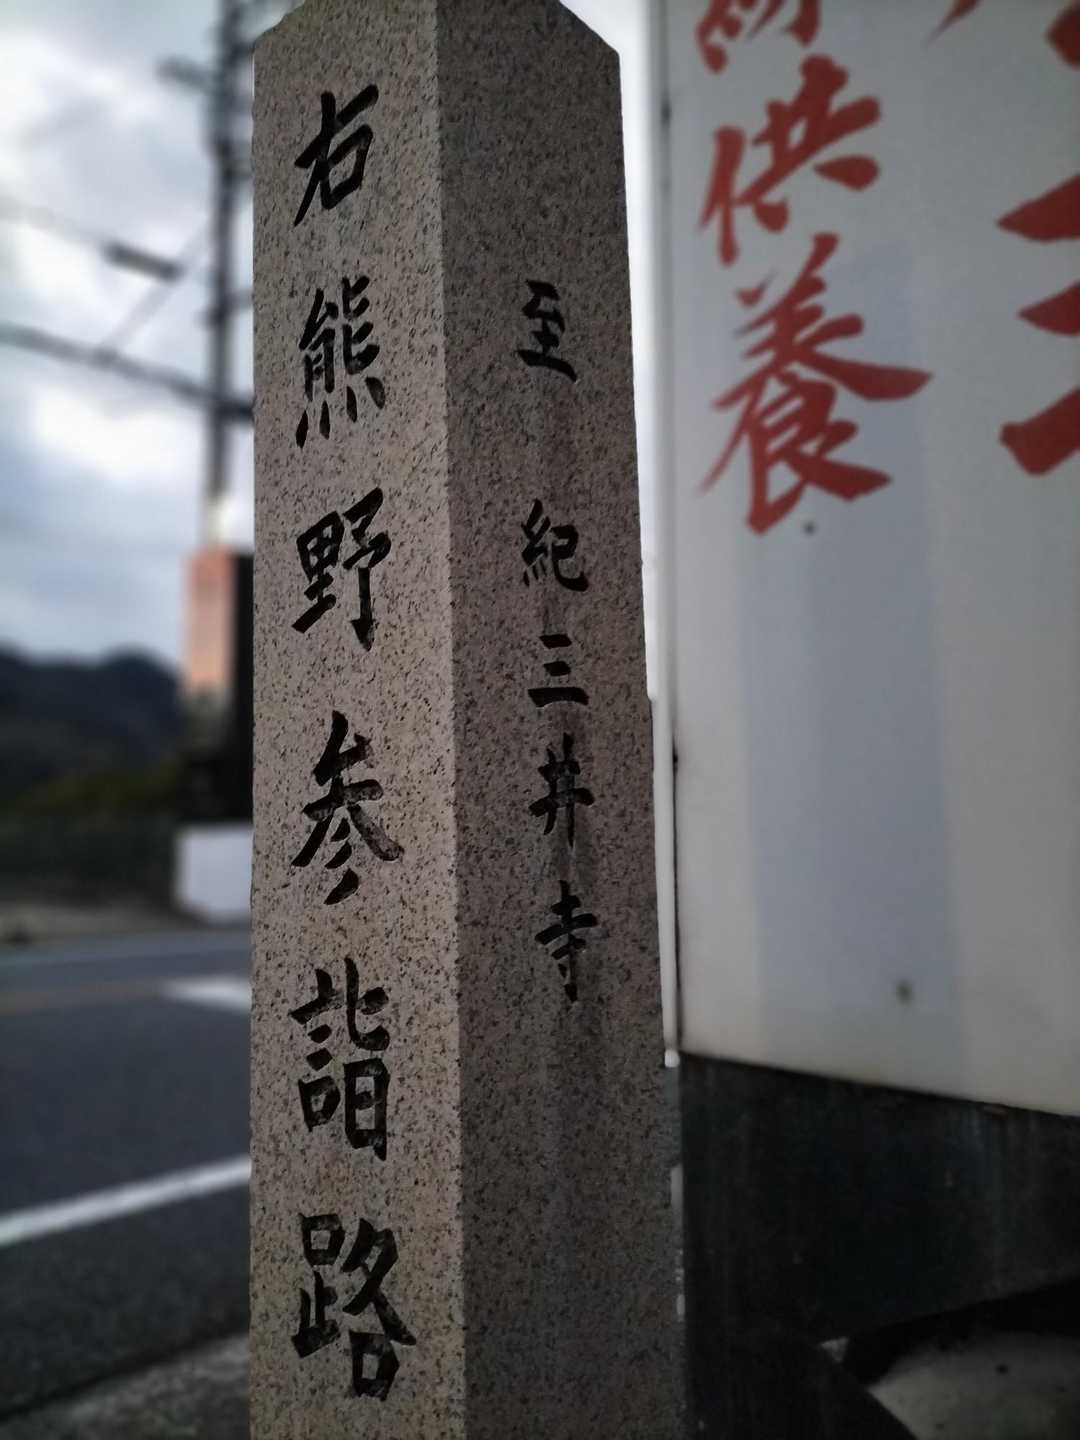 右熊野参詣路
至 紀三井寺
供養